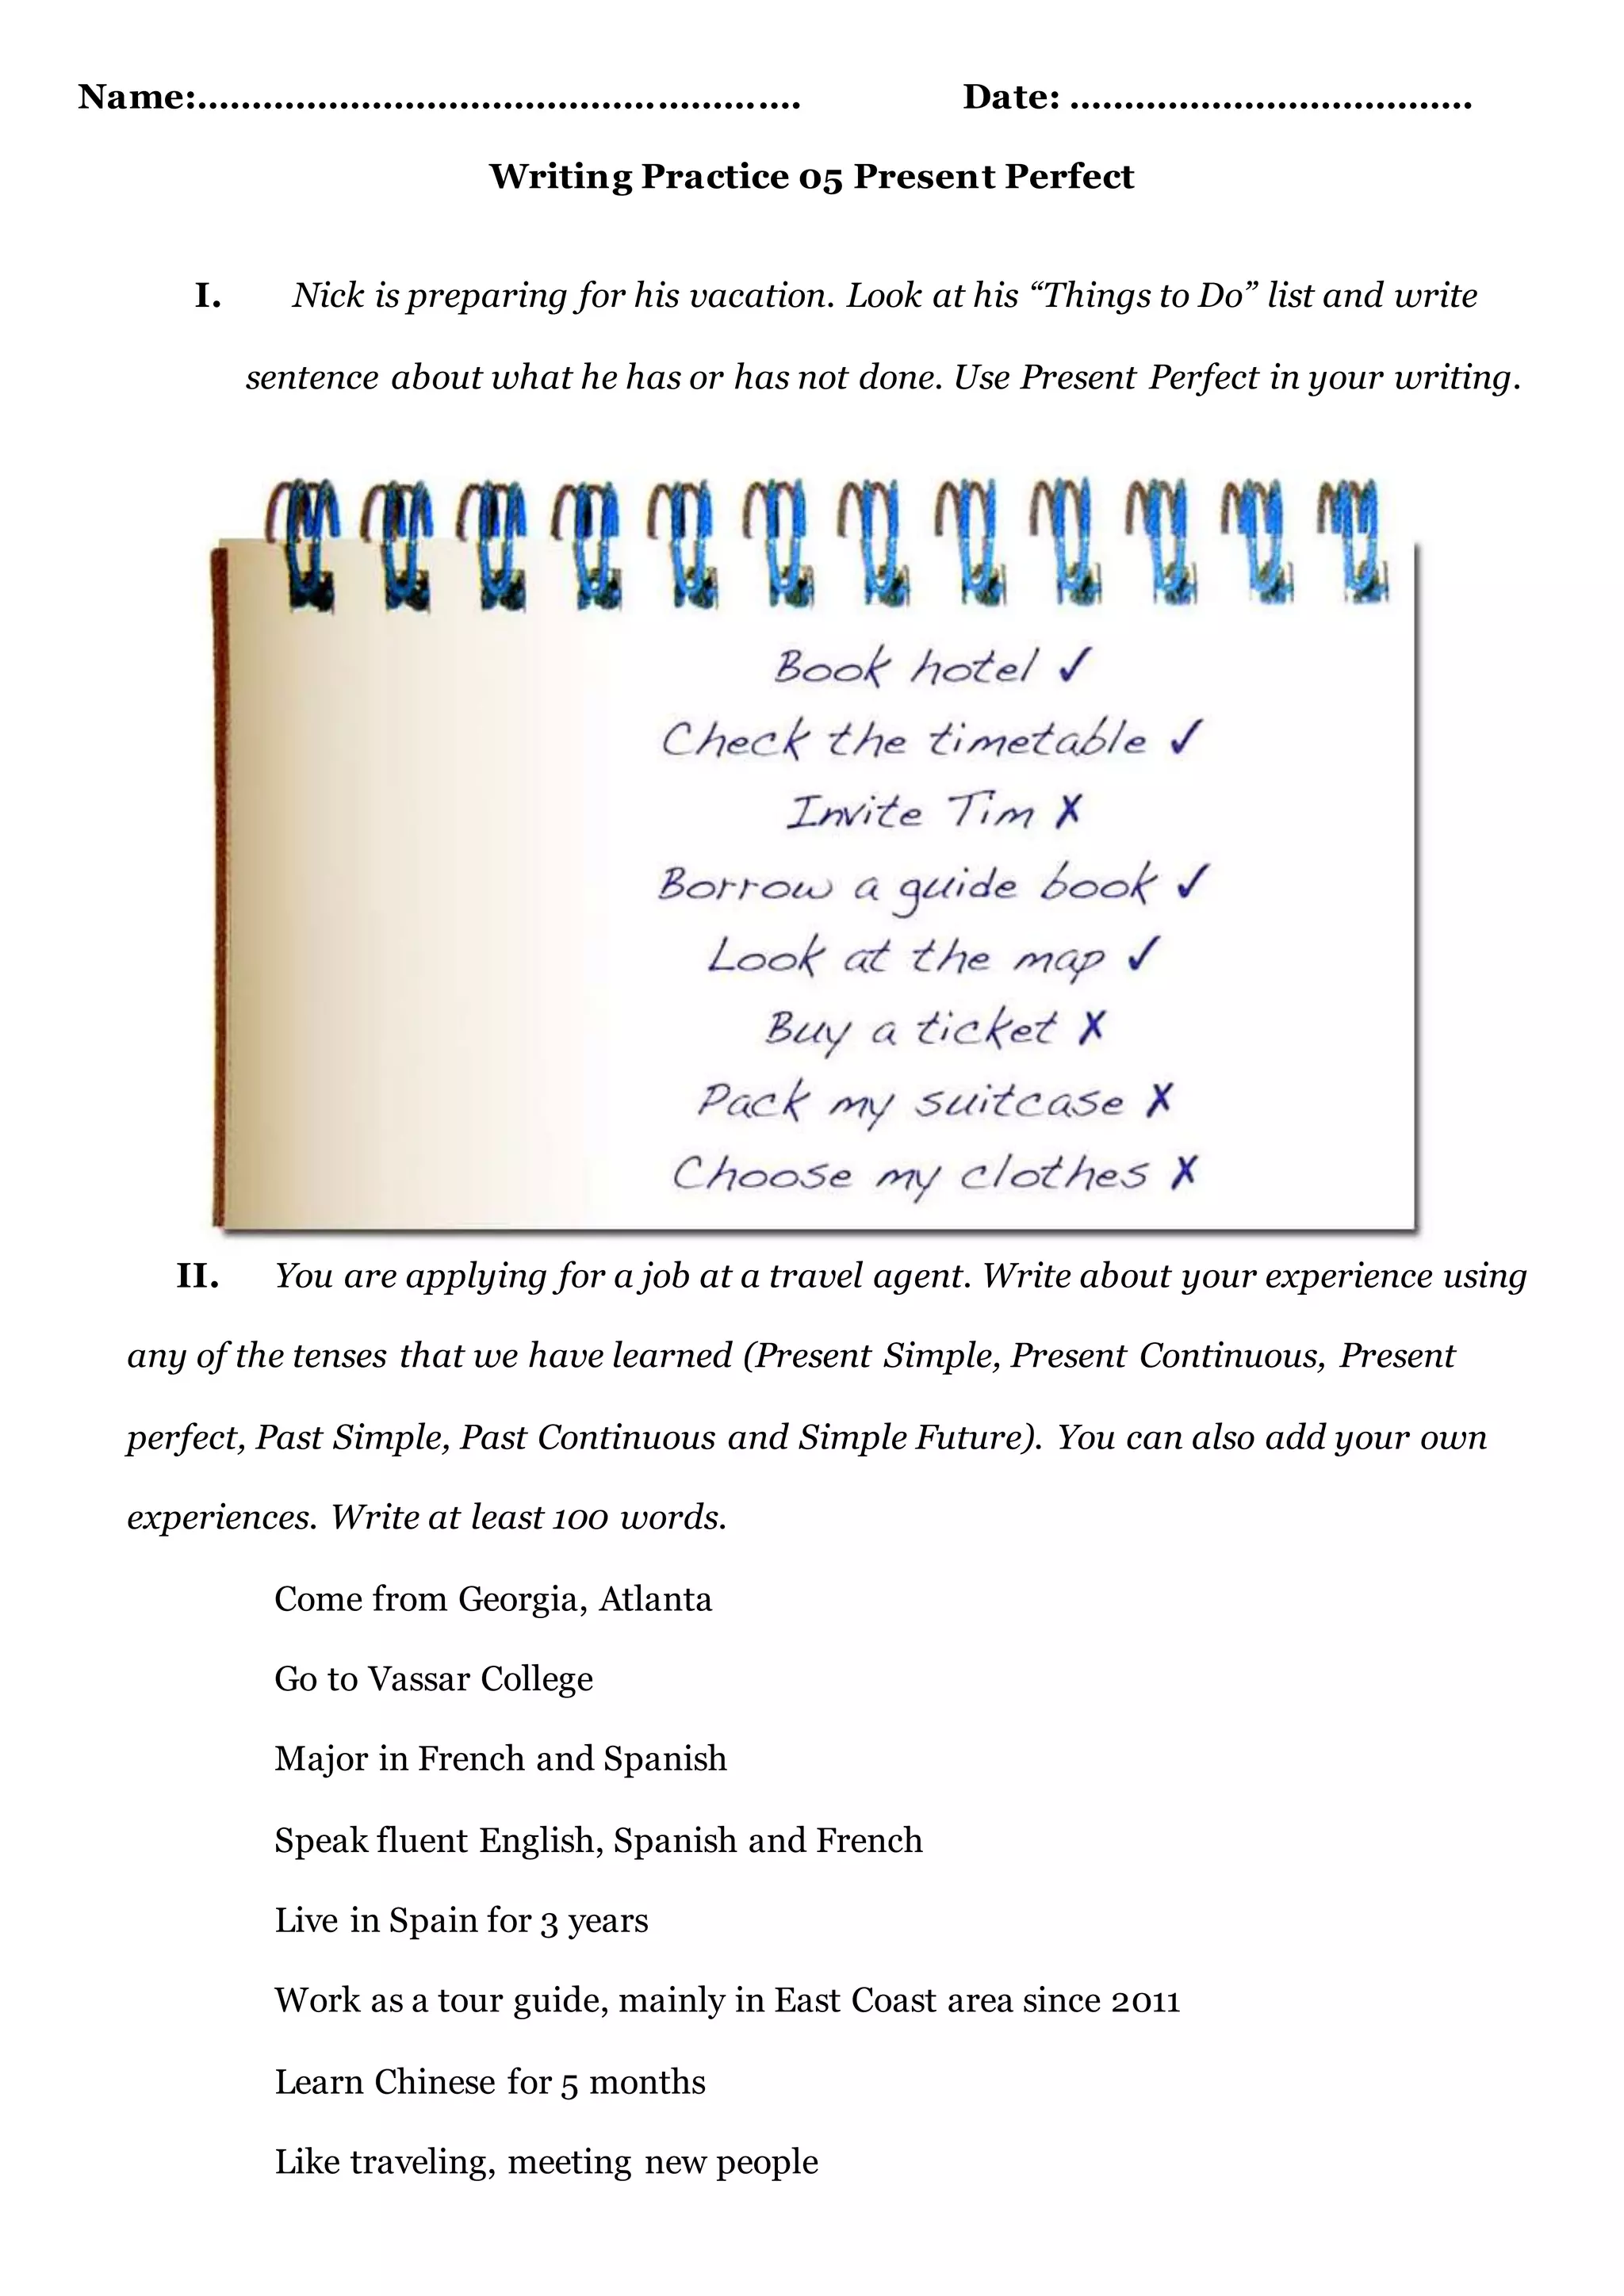 Name:........................................................ Date: .....................................
Writing Practice 05 Present Perfect
I. Nick is preparing for his vacation. Look at his “Things to Do” list and write
sentence about what he has or has not done. Use Present Perfect in your writing.
Book hotel ✓
Check the timetable ✓
Invite Tim ✗
Borrow a guide book ✓
Look at the map ✓
Buy a ticket ✗
Pack my suitcase ✗
Choose my clothes ✗
II. You are applying for a job at a travel agent. Write about your experience using
any of the tenses that we have learned (Present Simple, Present Continuous, Present
perfect, Past Simple, Past Continuous and Simple Future). You can also add your own
experiences. Write at least 100 words.
Come from Georgia, Atlanta
Go to Vassar College
Major in French and Spanish
Speak fluent English, Spanish and French
Live in Spain for 3 years
Work as a tour guide, mainly in East Coast area since 2011
Learn Chinese for 5 months
Like traveling, meeting new people